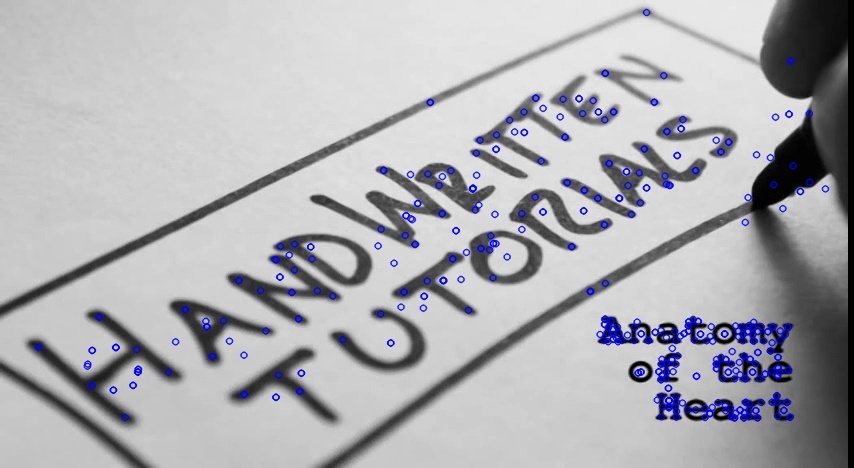 HANDWRITTEN
TUTORIALS
Anatomy
of the
Heart